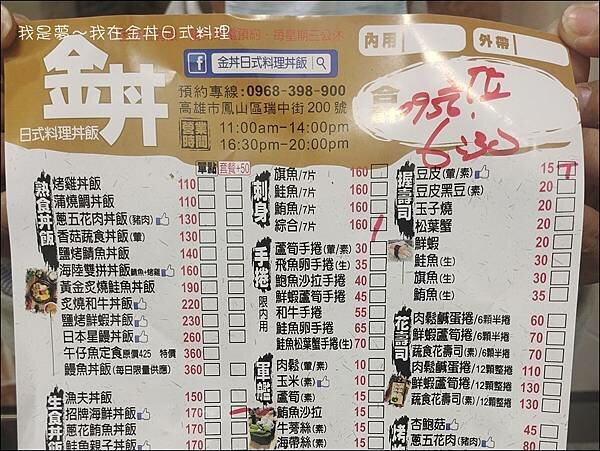 我是夢～我在金丼日式料理
預約，每星期三公休
金丼
日式料理丼飯
金丼日式料理丼飯
預約專線:0968-398-900
高雄市鳳山區瑞中街200號
營業時間
11:00am~14:00pm
16:30pm~20:00pm
內用
外帶
合
6:30
單點 套餐+50
熟食丼飯
烤雞丼飯 110
蒲燒鯛丼飯 110
蔥五花肉丼飯(豬肉) 130
香菇蔬食丼飯(葷) 130
鹽烤鯖魚丼飯 140
海陸雙拼丼飯 鯖魚+烤雞 160
黃金炙燒鮭魚丼飯 190
炙燒和牛丼飯 220
鹽烤鮮蝦丼飯 230
日本星鰻丼飯 240
午仔魚定食 原價425 特價 360
鰻魚丼飯(每日限量供應) 360
生食丼飯
漁夫丼飯 150
招牌海鮮丼飯 170
蔥花鮪魚丼飯 170
鮭魚親子丼飯 170
刺身
旗魚/7片 160
鮭魚/7片 160
鮪魚/7片 160
綜合/7片 160
手捲
限內用
蘆筍手捲(葷/素) 30
飛魚卵手捲(生) 35
鮑魚沙拉手捲 40
鮮蝦蘆筍手捲 45
和牛手捲 55
鮭魚卵手捲 65
鮭魚松葉蟹手捲(生) 70
軍艦
肉鬆(葷/素) 10
玉米 10
蘆筍(素) 10
鮪魚沙拉 15
牛蒡絲(素) 15
海帶絲(素) 15
握壽司
豆皮(葷/素) 15
豆皮黑豆(素) 20
玉子燒 20
松葉蟹 20
鮮蝦 20
鮭魚(生) 30
旗魚(生) 30
鮪魚(生) 35
花壽司
肉鬆鹹蛋捲/6顆半捲 60
鮮蝦蘆筍捲/6顆半捲 70
蔬食花壽司(素)/6顆半捲 70
肉鬆鹹蛋捲/12顆整捲 110
鮮蝦蘆筍捲/12顆整捲 130
蔬食花壽司(素)/12顆整捲 130
烤
杏鮑菇 45
蔥五花肉(豬肉) 80